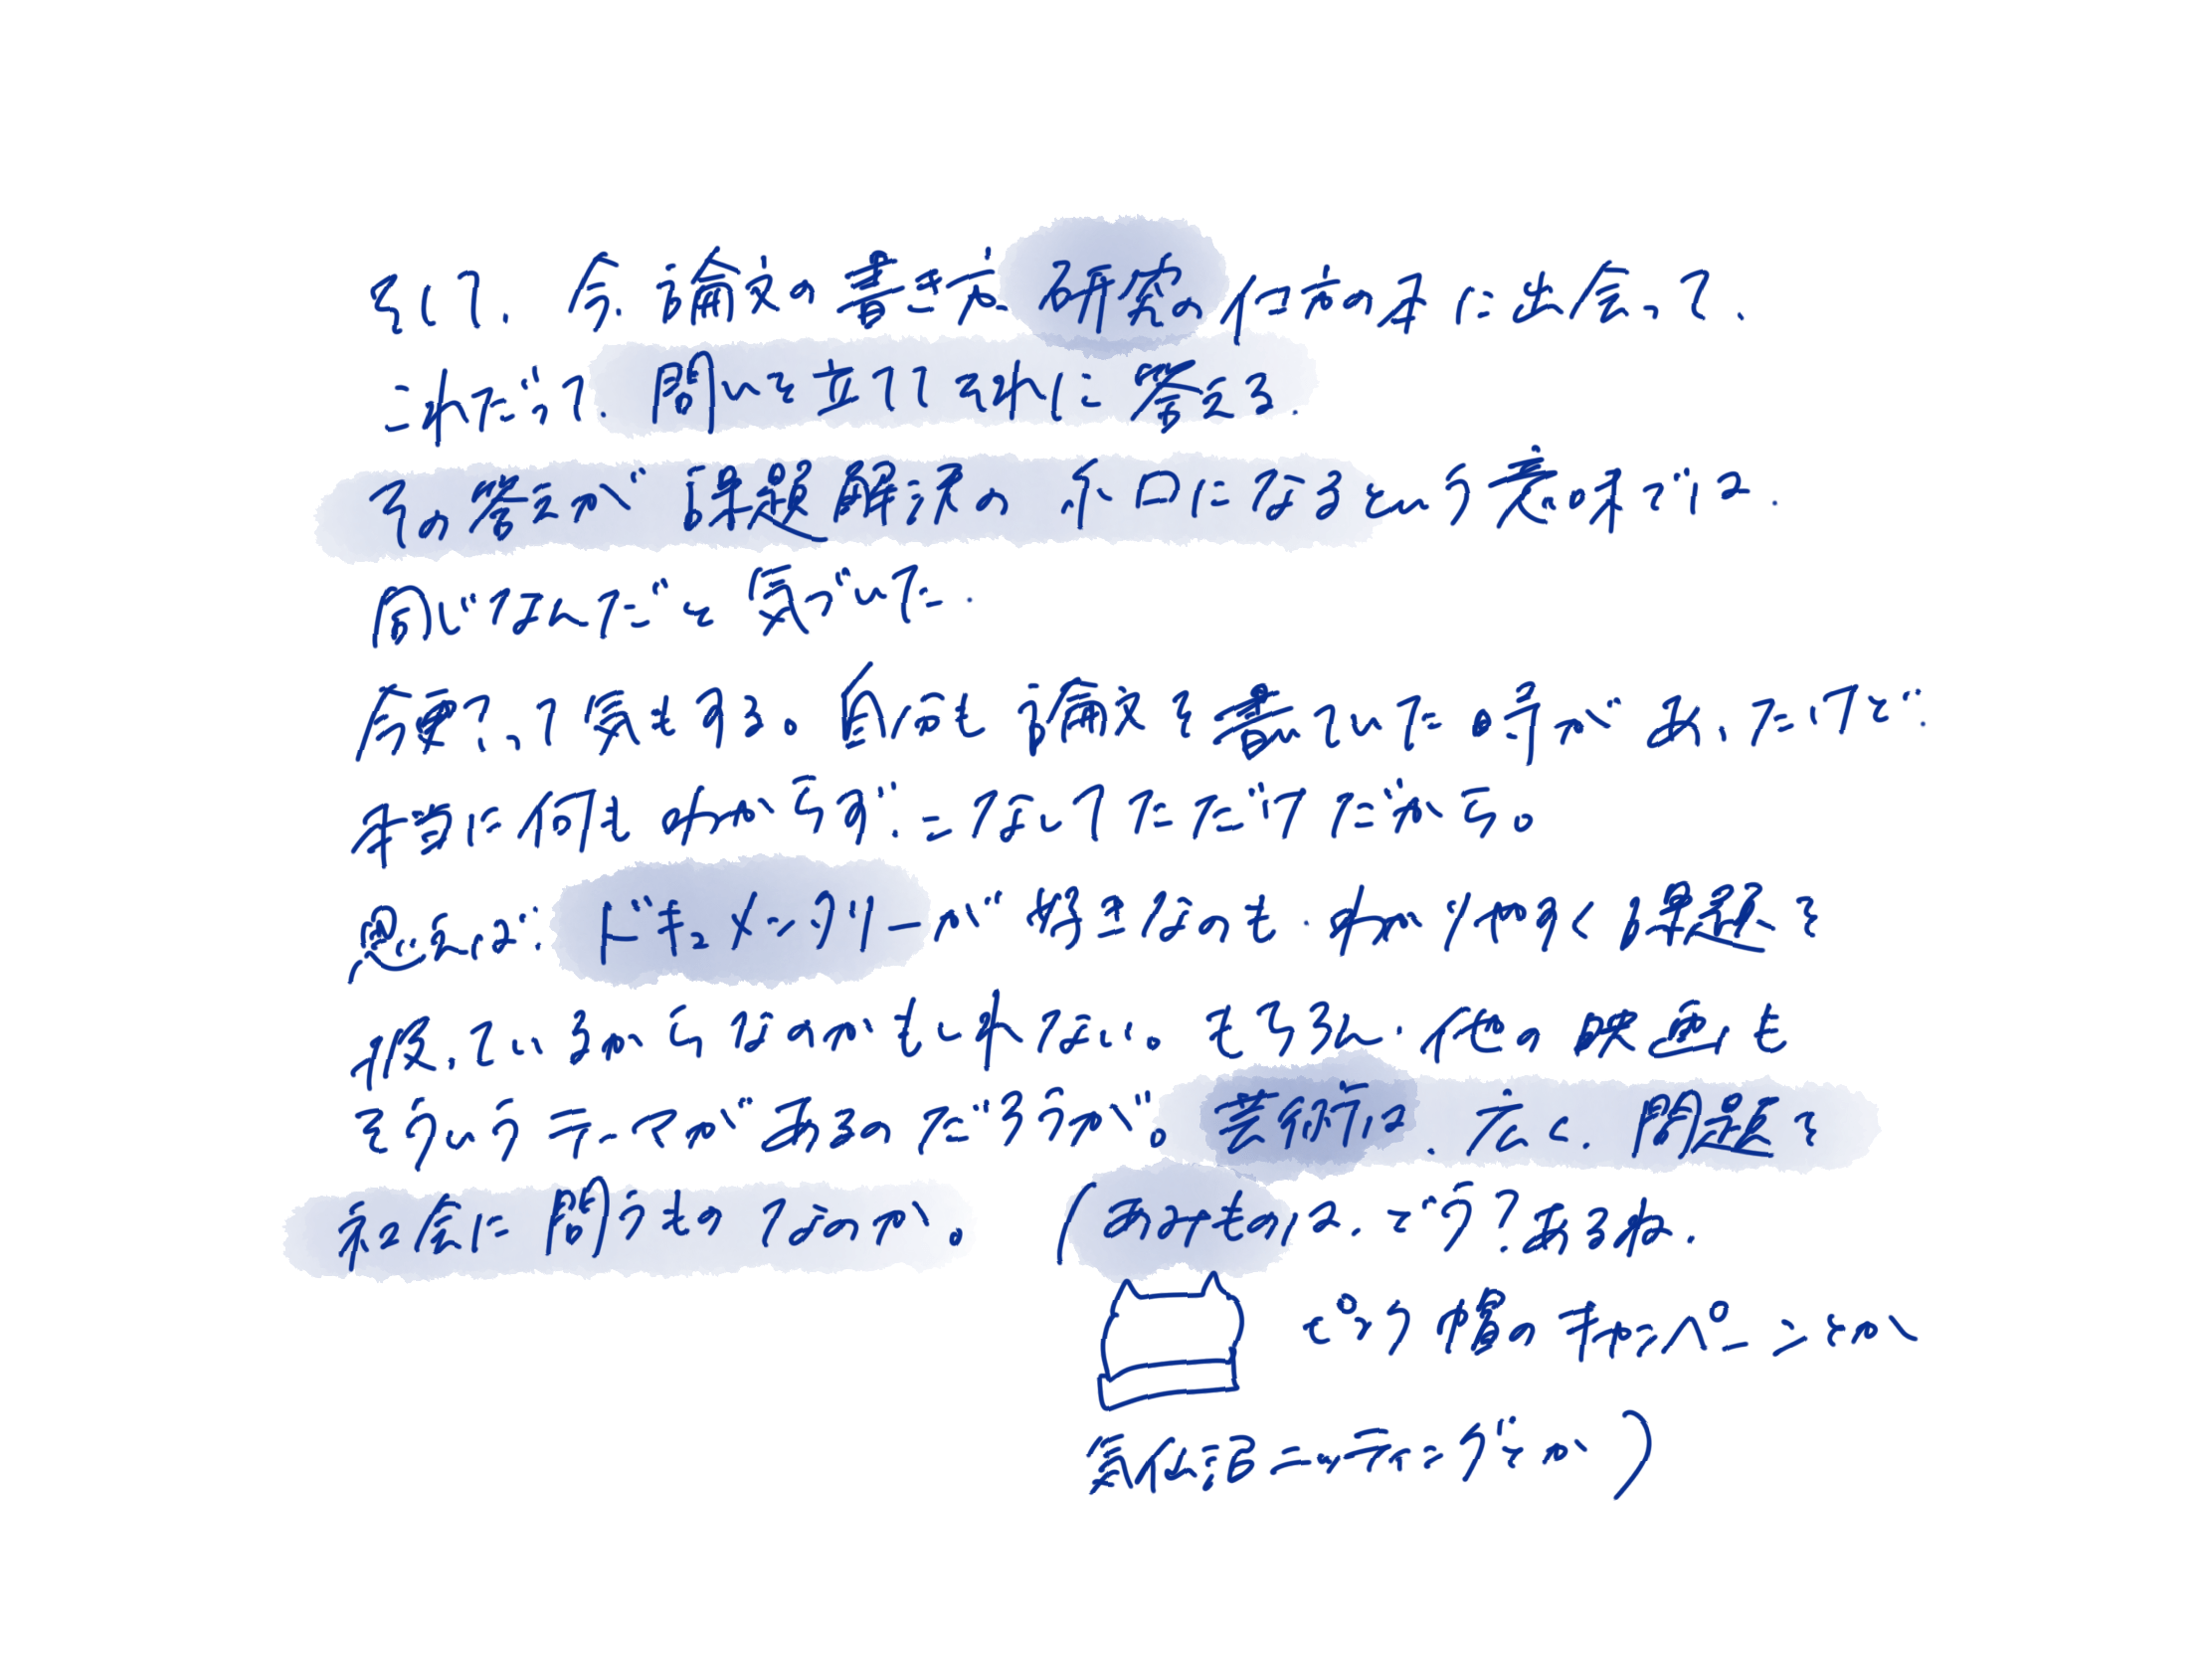 そして、今、論文の書き方、研究の仕方の本に出会って、
これだって、問いを立ててそれに答える、
その答えが課題解決の糸口になるという意味では、
同じなんだと気づいた、
今更?って気もする。自分も論文を書いていた時があったけど、
本当に何もわからず、こなしてただけだから。
思えば、ドキュメンタリーが好きなのも、わかりやすく課題を
扱っているからなのかもしれない。もちろん、他の映画も
そういうテーマがあるのだろうが。芸術は、広く、問題を
社会に問うものなのか。(あみものは、どう?あるね、
ピンク帽のキャンペーンとか
気仙沼ニッティングとか)